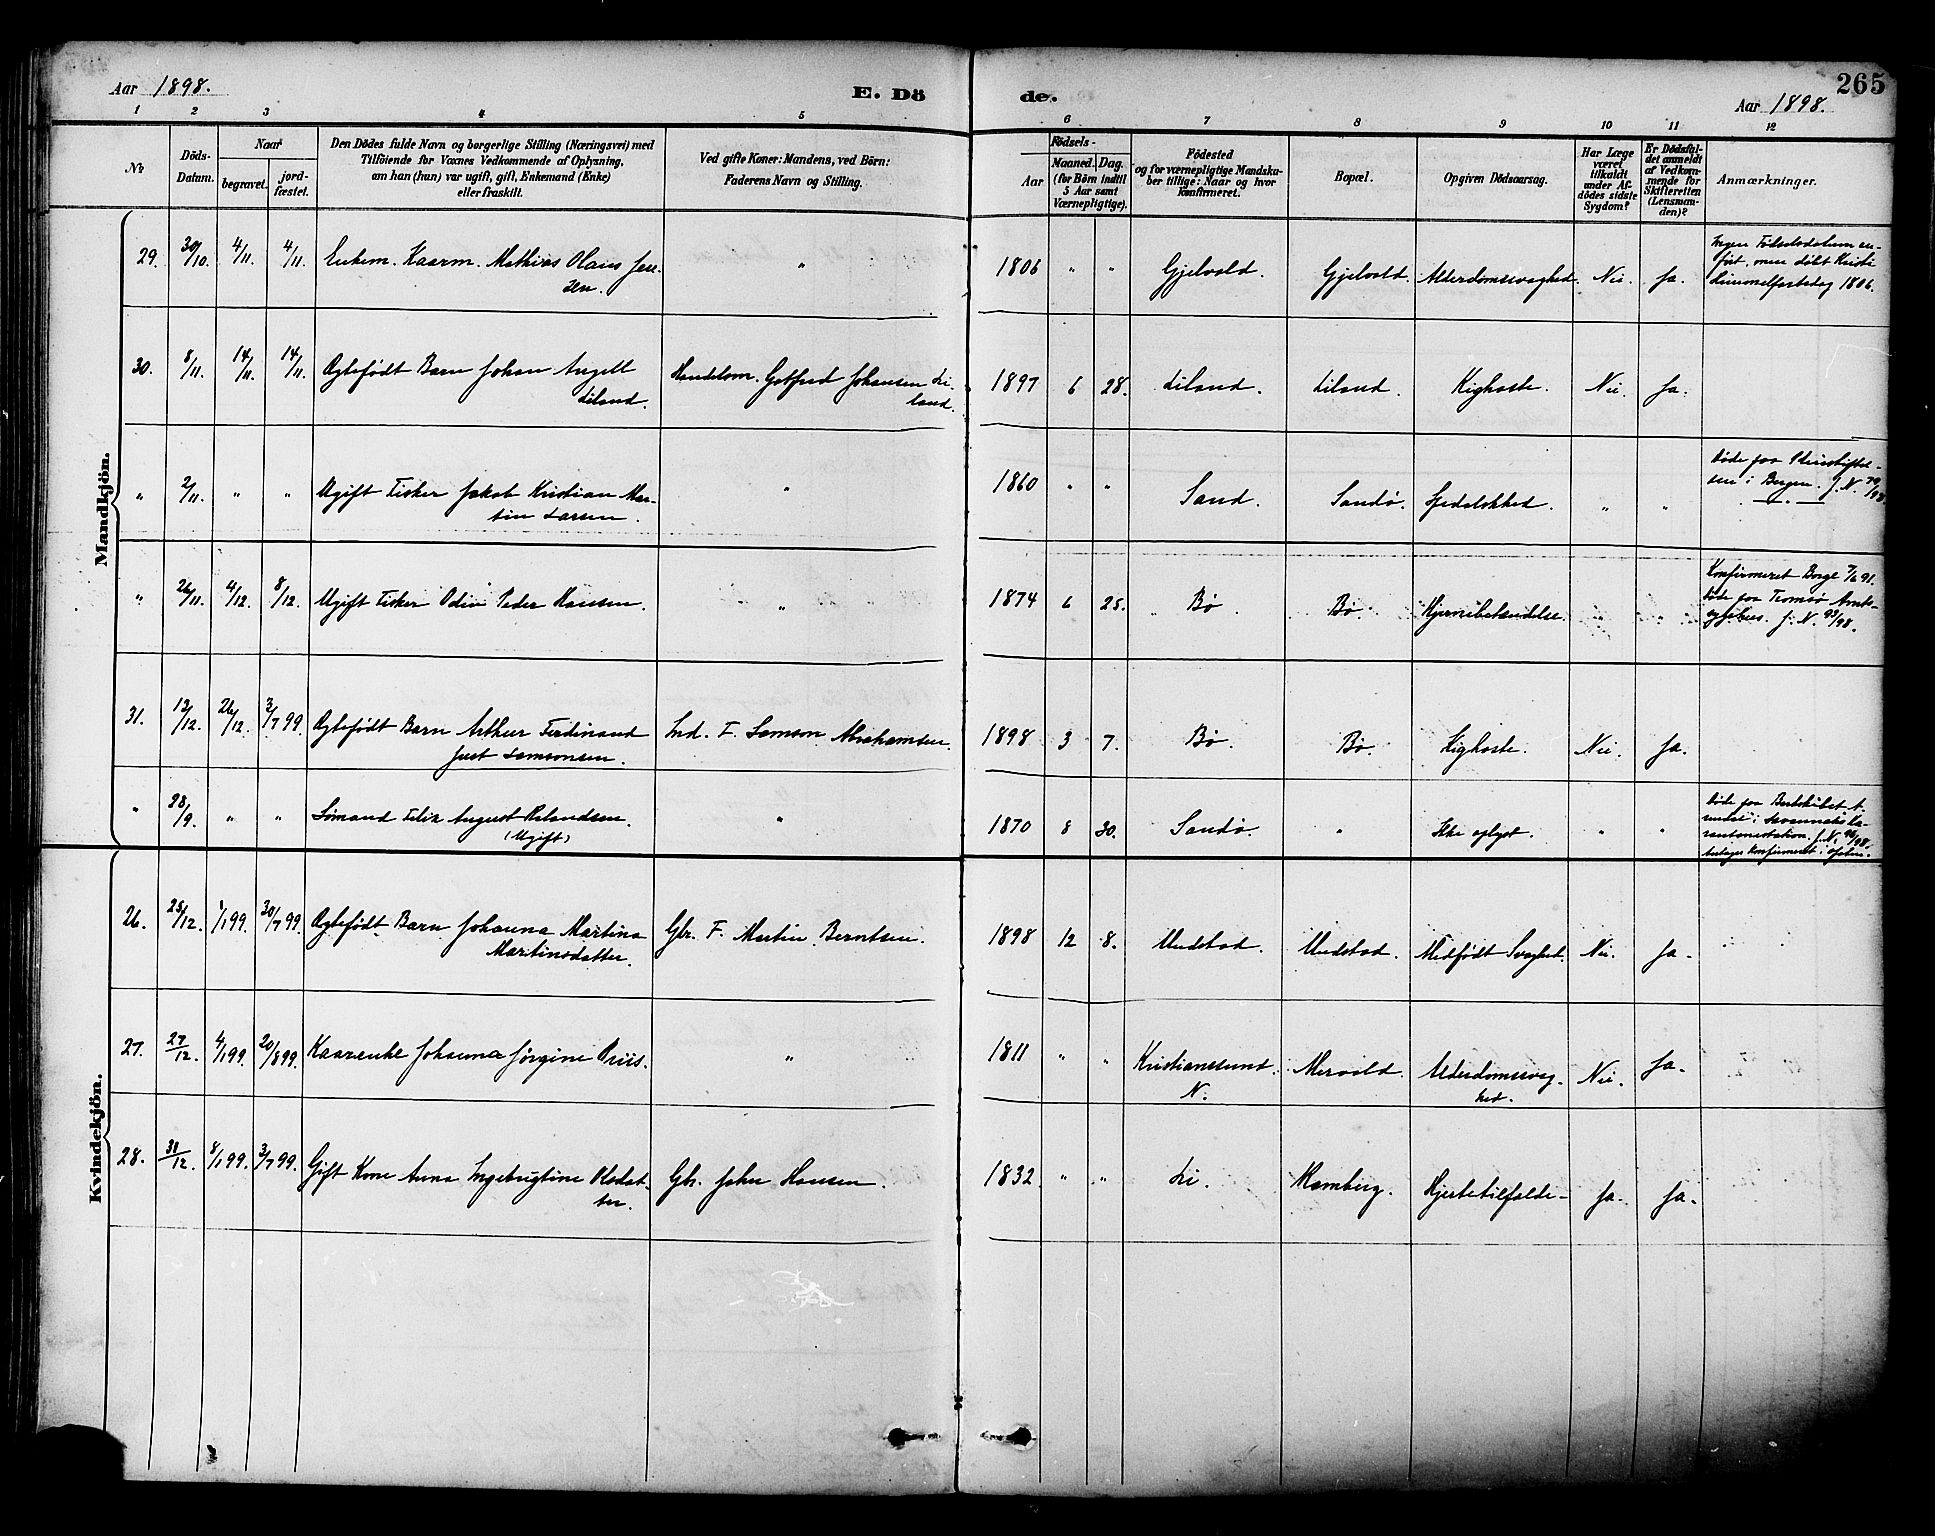 265
Aar 1898.
E. Dö de.
Aar 1898.
1 2 3 4 5 6 7 8 9 10 11 12
No
Döds-
Datum.
Naar
begravet.
jord-
fæstet.
Den Dödes fulde Navn og borgerlige Stilling (Næringsvei) med
Tilföiende for Voxnes Vedkommende af Oplysning,
om han (hun) var ugift, gift, Enkemand (Enke)
eller fraskilt.
Ved gifte Koner: Mandens, ved Börn:
Faderens Navn og Stilling.
Födsels-
Aar
Maaned. Dag.
(for Börn indtil
5 Aar samt
Værnepligtige).
Födested
og for værnepligtige Mandska-
ber tillige: Naar og hvor
konfirmeret.
Bopæl.
Opgiven Dödsaarsag.
Har Læge
været
tilkaldt
under Af-
dödes sidste
Sygdom?
Er Dödsfal-
det anmeldt
af Vedkom-
mende for
Skifteretten
(Lensman-
den)?
Anmærkninger.
Mandkjön.
29. 30/10. 4/11. 4/11. Enkem. Kaarm. Mathias Olaus Jen-
sen.
" 1806 " " Gjelvold. Gjelvold. Alderdomssvaghed. Nei. Ja.
Ingen Fødselsdatum an-
ført, men døbt Kristi
Himmelfartsdag 1806.
30. 8/11. 14/11. 14/11. Ægtefødt Barn Johan Angell
Liland.
Handelsm. Gotfred Johansen Li-
land.
1897 6 28. Liland. Liland. Kighoste. Nei. Ja.
" 2/11. " " Ugift Fisker Jakob Kristian Mar-
tin Larsen.
" 1860 " " Sand. Sandø. Spedalskhed. " "
Døde paa Pleiestiftel-
sen i Bergen. J. N. 79/98
" 26/11. 4/12. 8/12. Ugift Fisker Odin Peder Hansen.
" 1874 6 25. Bø. Bø. Hjernebetændelse. " "
Konfirmeret Borge 7/6 91.
Døde paa Tromsø Amts-
sygehus. J. N. 93/98.
31. 12/12. 26/12. 3/7 99. Ægtefødt Barn Arthur Ferdinand
Just Samsonsen.
Ind. F. Samson Abrahamsen.
1898 3 7. Bø. Bø. Kighoste. Nei. Ja.
" 28/9. " " Sømand Felix August Relandsen.
(Ugift)
" 1870 8 30. Sandø. " Ikke oplyst. " "
Døde paa
i
J. N. 96/98.
Antages Konfirmeret i
Kvindekjön.
26. 25/12. 1/1 99. 30/7 99. Ægtefødt Barn Johanna Martina
Martinsdatter.
Gbr. F. Martin Berntsen.
1898 12 8. Undstad. Undstad. Medfødt Svaghed. Nei. Ja.
27. 27/12. 4/1 99. 20/8 99. Kaarenke Johanna Jørgine Priis.
" 1811 " " Kristianssund. Mervold. Alderdomssvag- Nei. Ja.
N. hed.
28. 31/12. 8/1 99. 3/7 99. Gift Kone Anna Ingebrigtine Olsdat-
ter.
Gbr. John Hansen.
1832 " " Li. Ramberg. Hjertetilfælde. Ja. Ja.